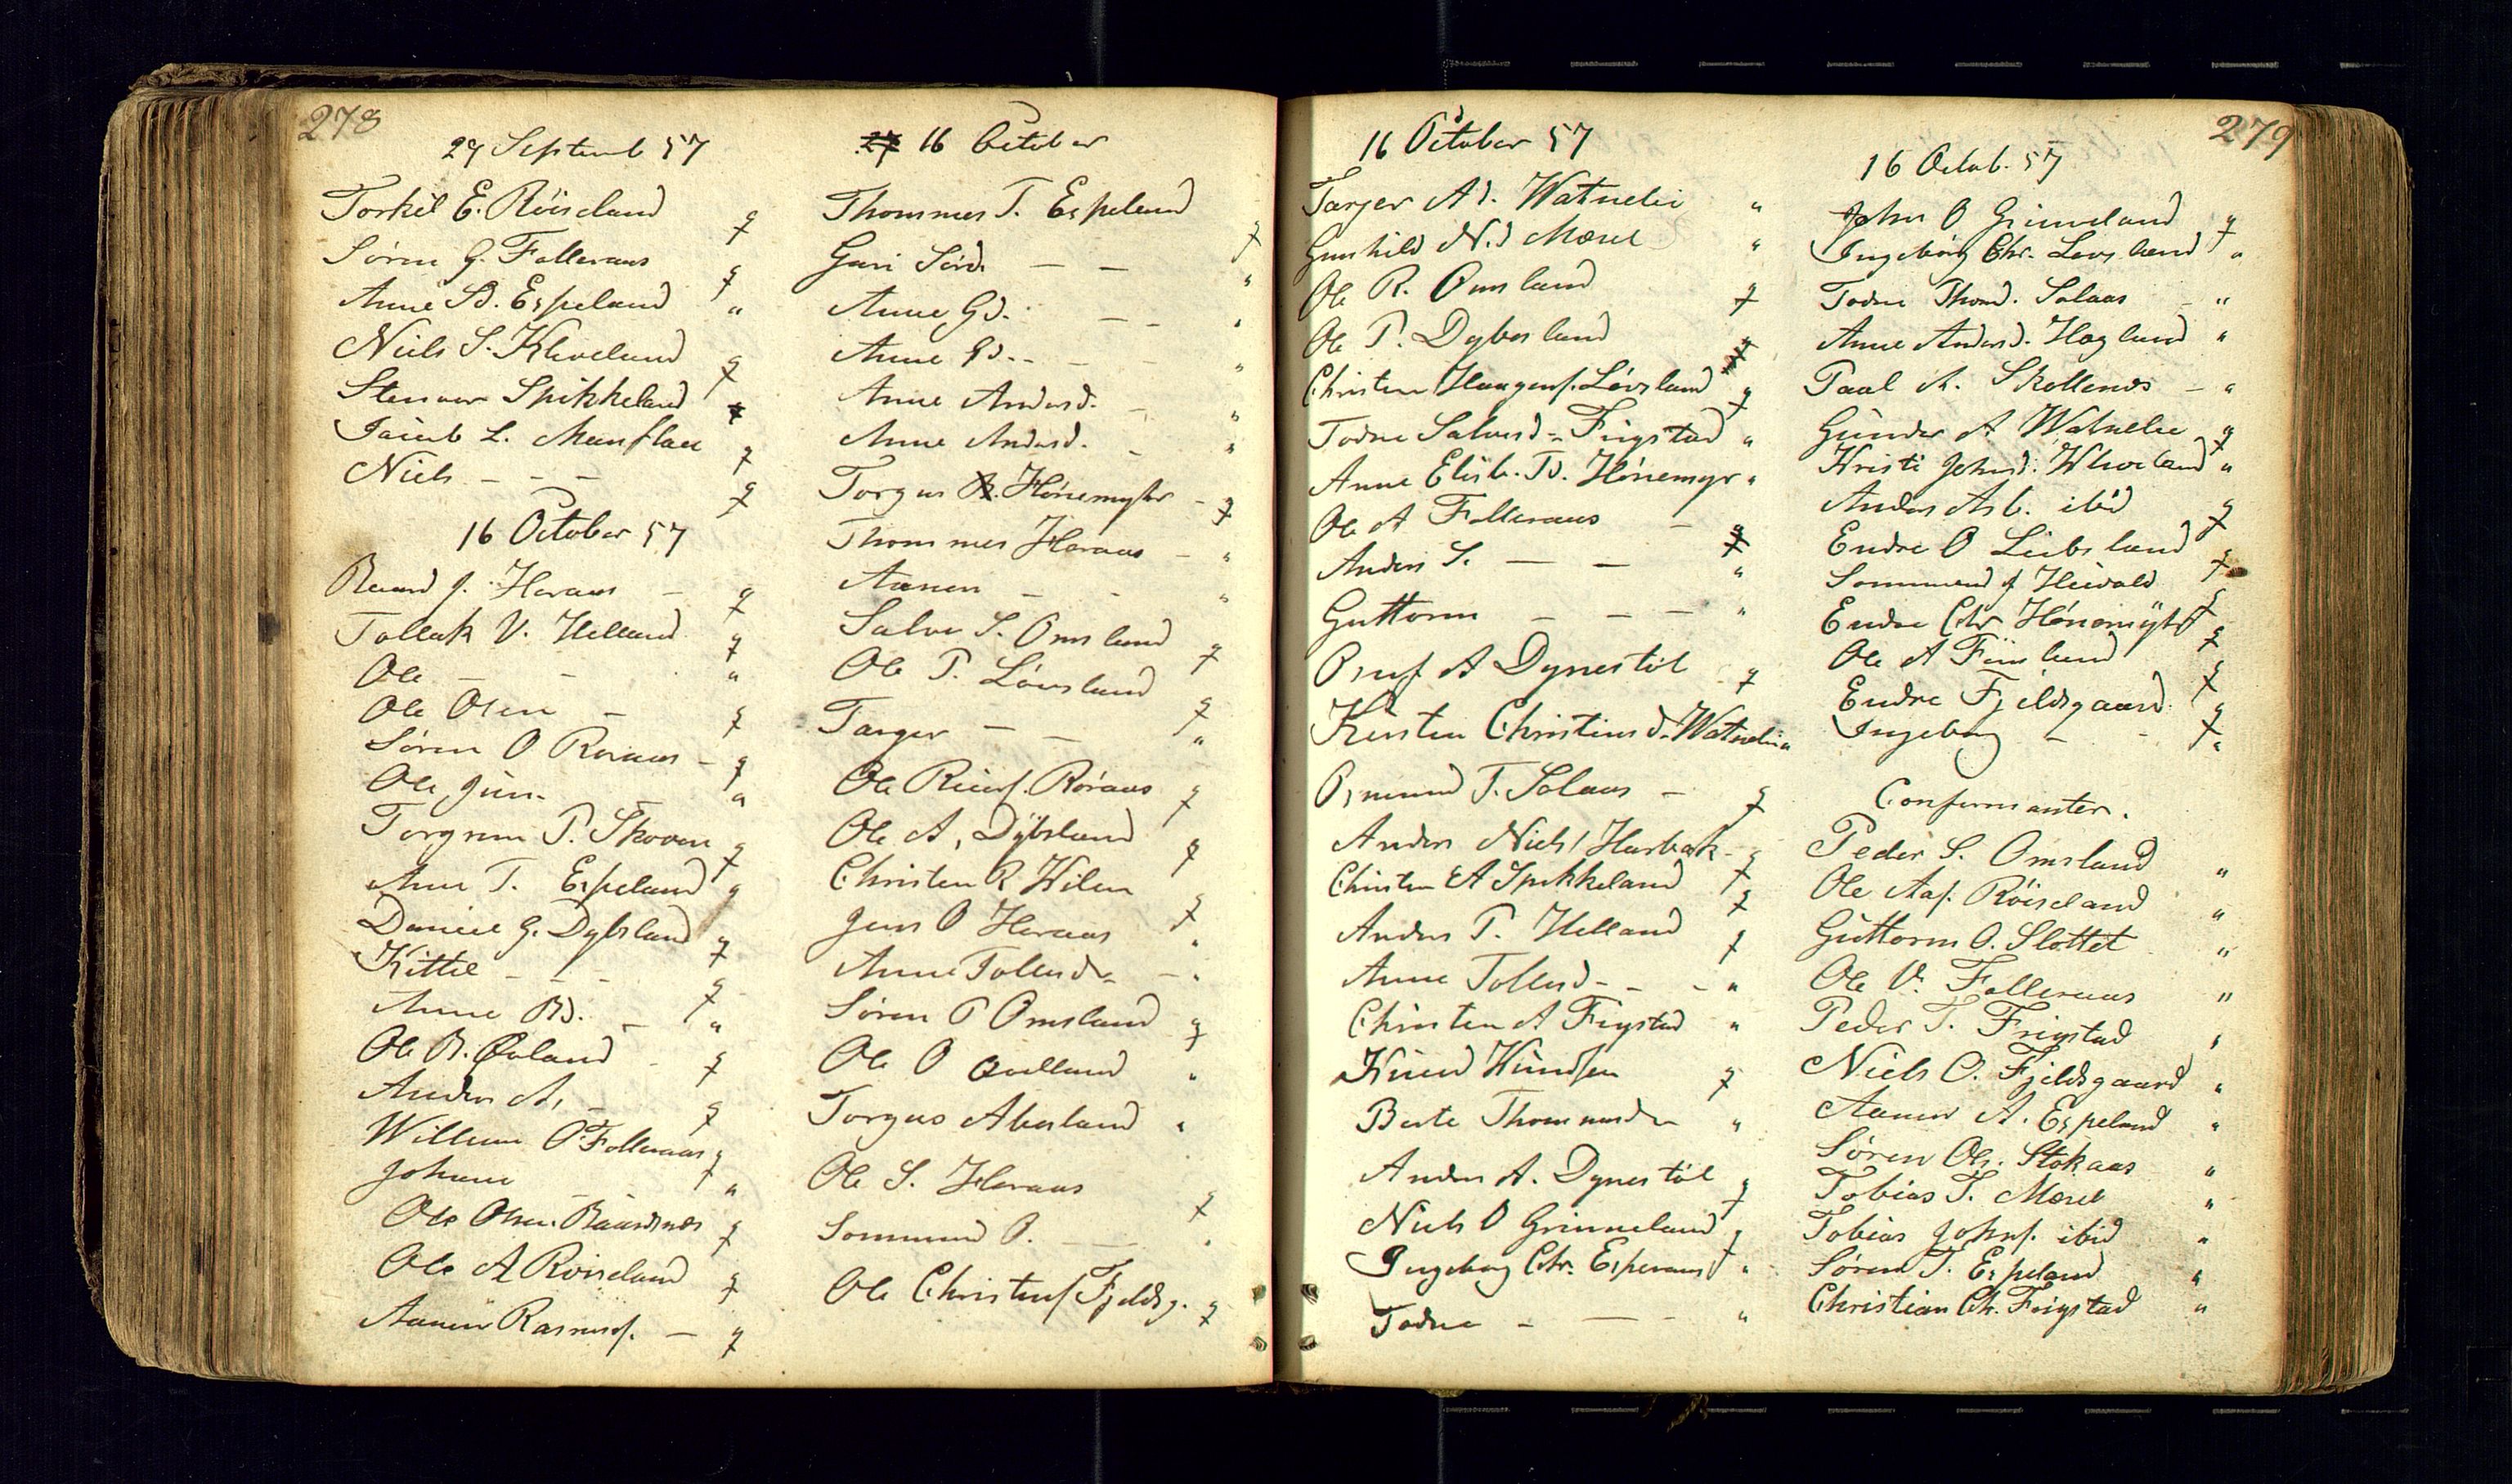 278
29 Septemb 57
Torkil E. Røiseland g
f
Søren G. Folleraas g
f
Anne Sd. Espeland "
Niels S. Kleveland g
f
Stenver Spikkeland f
Jacob L. f
Niels - - - g
f
16 October 57
Baard J. Haraas - g
f
Tollak V. Helland g
f
Ole - - "
Ole Olsen - g
f
Søren O Røraas - g
f
Ole Jun. "
Torgrim P. Skoven g
f
Anne T. Espeland g
Daniel G. Dybsland g
f
Kittil - - - g
f
Anne Bd. - "
Ole B. Øvland - g
f
Anders A. - g
f
Willum O. Folleraas g
f
Johanne "
Ole Olsen. Baardsnes g
f
Ole A Røiseland g
f
Aanen Rasmusf. - g
f
16 October
Thommes T. Espeland g
f
Guri Sørd. - - "
Anne Gd. - - "
Anne Gd. - - "
Anne Andersd. - "
Anne Andersd. - "
Torgus Hønemyhr - g
f
Thommes Haraas - "
Aanen - - "
Salve S. Omsland g
f
Ole P. Løvsland g
f
Targer - - "
Ole Røraas g
f
Ole A. Dÿbsland g
f
Christen R Hilen g
f
Jens O Haraas "
Anne Tollevsd. - "
Søren P Omsland g
f
Ole O Qvelland "
Torgus Abesland "
Ole S. Haraas g
f
Sommund O. - "
Ole Christensf Fjeldsg. g
f
279
16 October 57
Targer Ad. Watnelie "
Gunhild N.d Mærel "
Ole R. Omsland g
f
Ole P. Dybesland g
f
Christen Haagensf. Løvsland g
f
Todne Salvesd. Frigstad "
Anne Elisb. Td. Hønemyr "
Ole A Folleraas - g
f
Anders S. - - "
Guttorm - - - "
Osuf A Dynestøl g
f
Kirsten Christensd. Watnelie "
Osmund T. Solaas - g
f
Anders Nielsf Harbak - g
f
Christen A Spikkeland g
f
Anders T. Helland g
f
Anne Tollevsd - - - "
Christen A Frigstad "
Knud Knudsen g
f
Berte Thommesd "
Anders A. Dynestøl g
f
Niels O Grimeland g
f
Ingeborg Chr. "
Todne - - - "
16 Octob. 57
John O Grimeland g
f
Ingeborg Chr. Løvsland "
Todne Thomd. Solaas - "
Anne Andersd. Hægland "
Paal A. Skollenæs - "
Gunder A Watnelie g
f
Kristi Johnsd. Kleveland "
Anders Asb. ibid g
f
Endre O Liebsland g
f
Sommund J Heivold g
f
Endre Chr. Hønemÿhr g
f
Ole A Fiinsland g
f
Endre Fjeldsgaard g
f
Ingeborg - - "
Confirmanter.
Peder S. Omsland "
Ole Aas. Røiseland "
Guttorm O. Slottet "
Ole V. Folleraas "
Peder T. Frigstad "
Niels O. Fjeldsgaard "
Aanen A. Espeland "
Søren Ols. Stokaas "
Tobias T. Mærel "
Tobias Johnsf. ibid "
Søren T. Espeland "
Christian Ch. Frigstad "